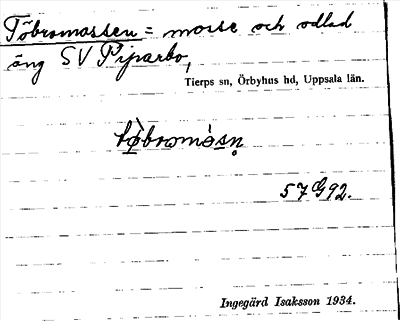 Töbromossen = mosse och odlad
äng SV Piparbo,
Tierps sn, Örbyhus hd, Uppsala län.
tö̀bromósn̥
57 G 92.
Ingegärd Isaksson 1934.